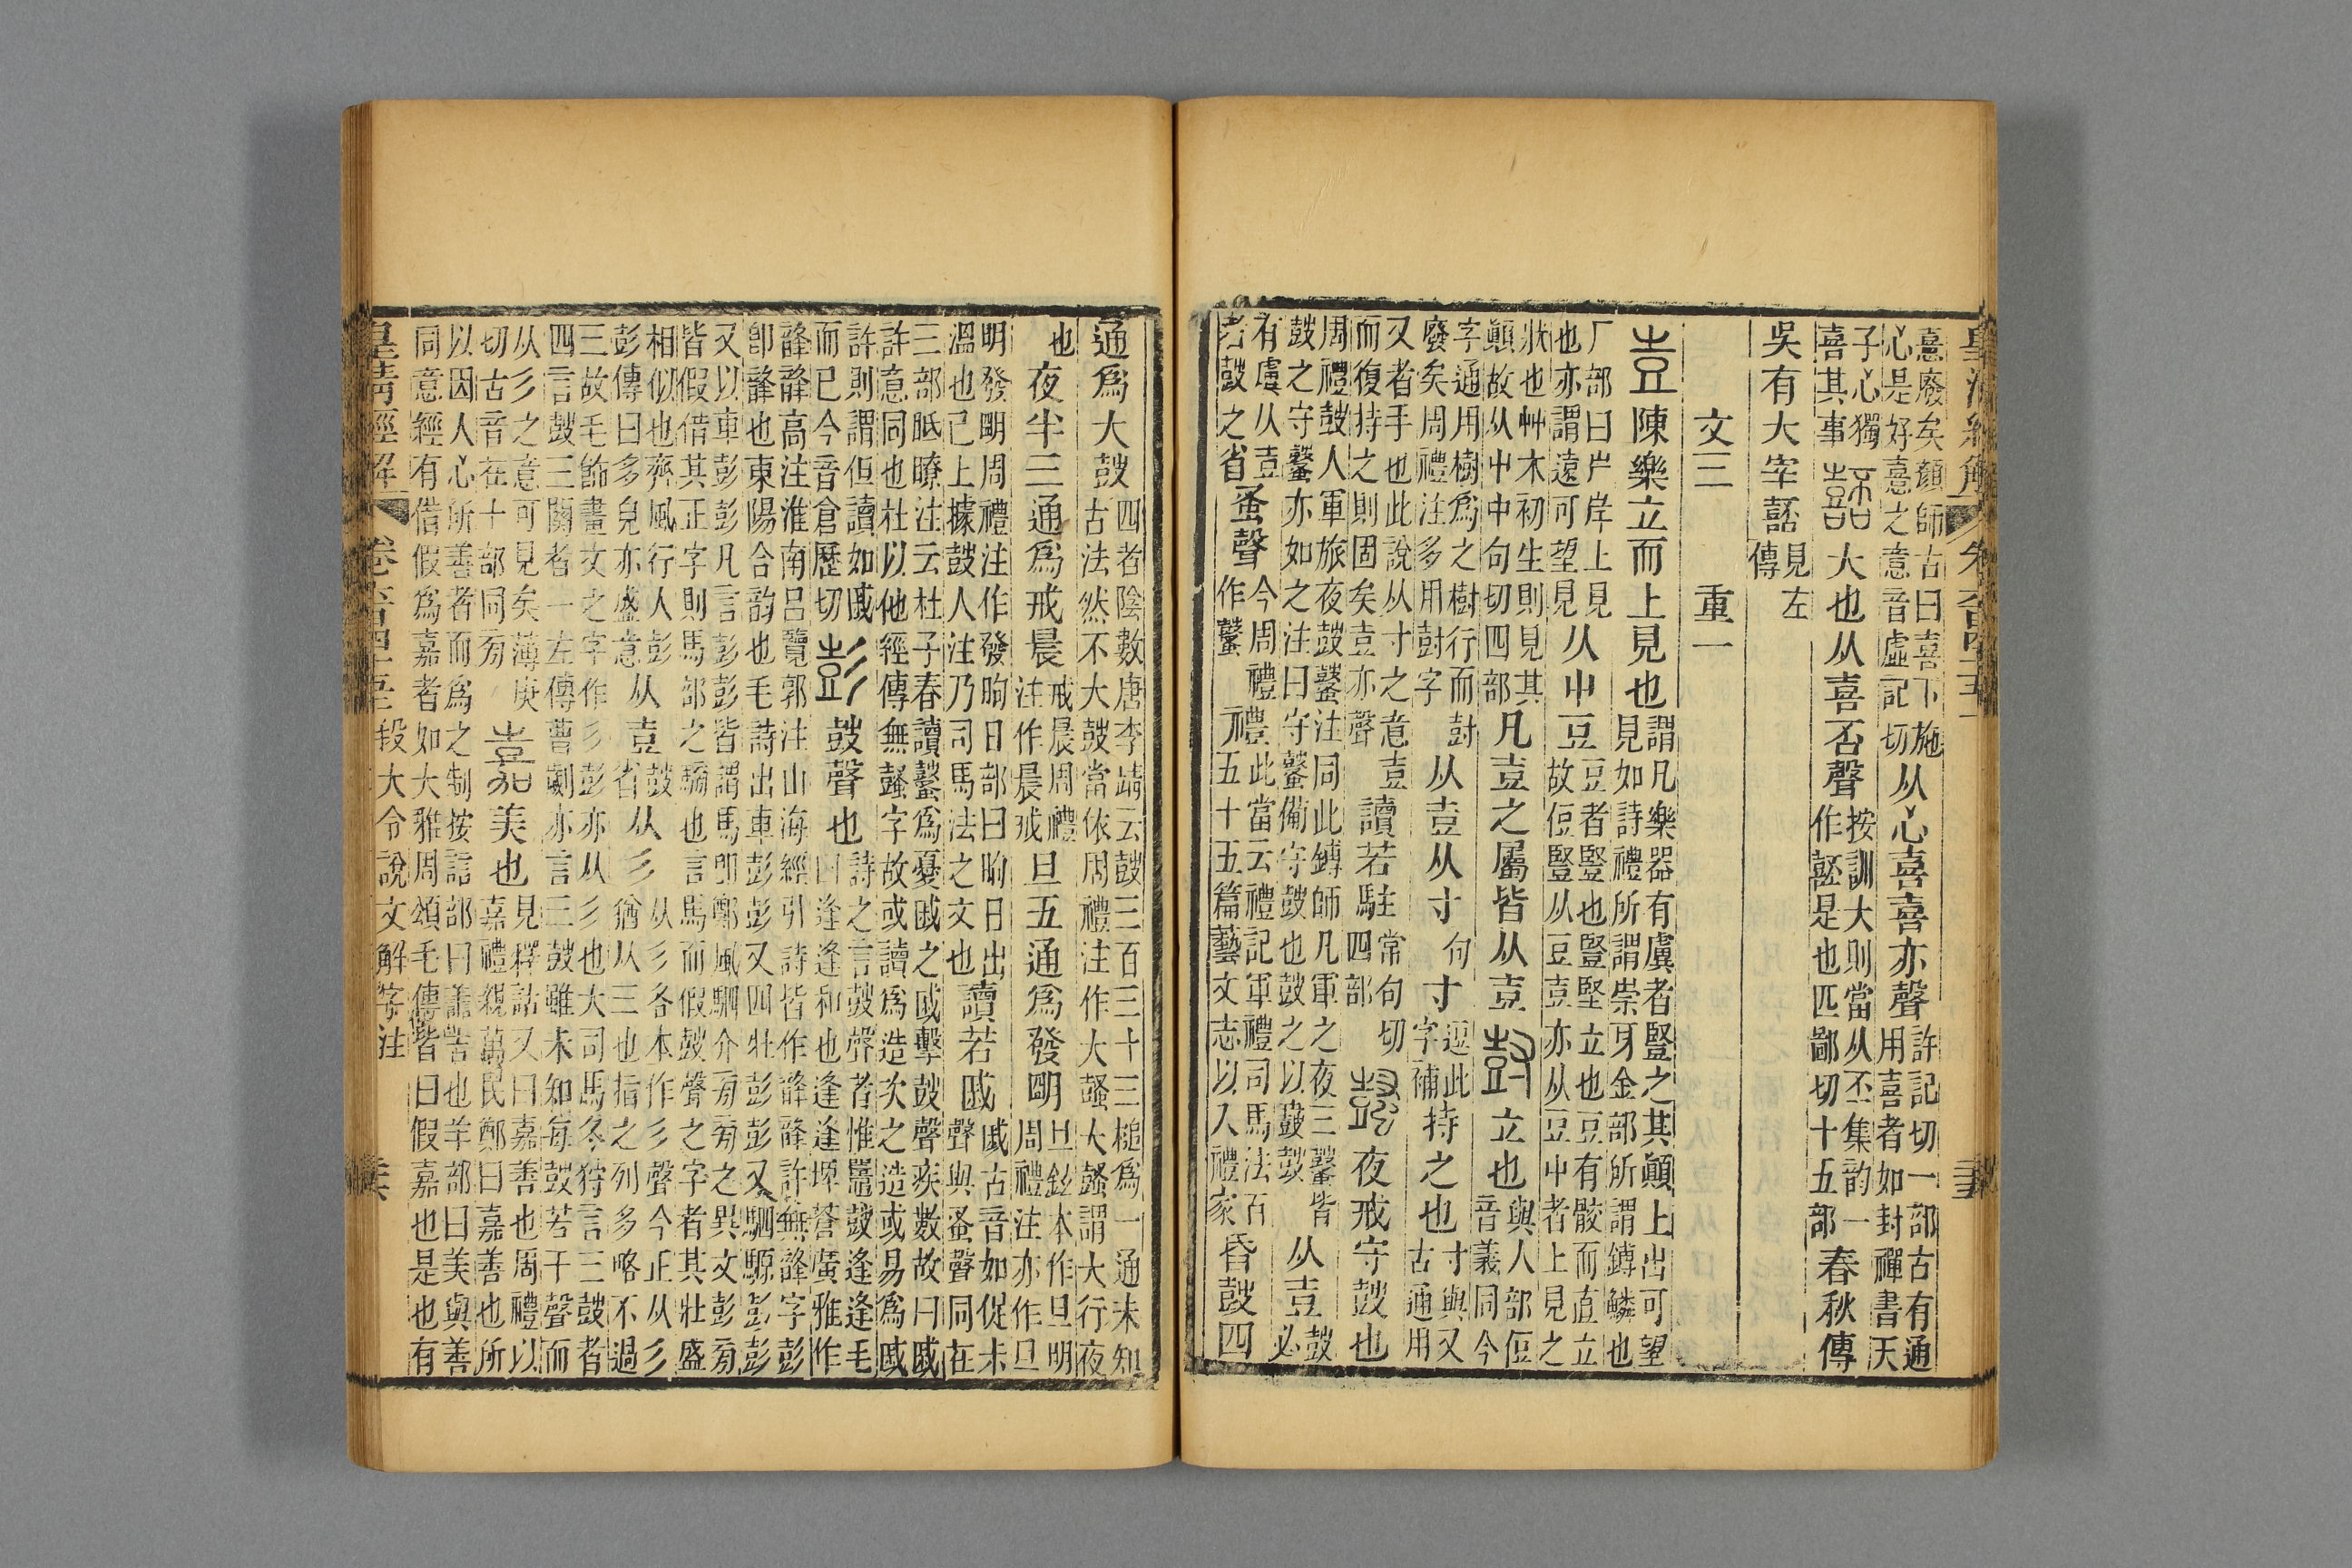 皇清經解 卷六百四十五
憙廢矣顏師古曰喜下施心是好憙之意音虛記切从心喜喜亦聲許記切一部古有通用喜者如封禪書天
子心獨喜其事嚭大也从喜否聲按訓大則當从丕集韵一作嚭是也匹鄙切十五部春秋傳
吳有大宰嚭見左傳
文三 重一
壴陳樂立而上見也謂凡樂器有虡者豎之其顚上出可望見如詩禮所謂崇牙金部所謂鎛鱗也
厂部曰屵岸上見也亦謂遠可望見从屮豆豆者豎也豎堅立也豆有骹而直立故侸豎从豆壴亦从豆屮者上見之
狀也艸木初生則見其顚故从屮中句切四部凡壴之屬皆从壴尌立也與人部侸音義同今
字通用樹爲之樹行而尌廢矣周禮注多用尌字从壴从寸句寸逗此字補持之也寸與又古通用
又者手也此說从寸之意壴而復持之則固矣壴亦聲讀若駐常句切四部鼜夜戒守鼓也
周禮鼓人軍旅夜鼓鼜注同此鎛師凡軍之夜三鼜皆鼓之守鼜亦如之注曰守鼜備守鼓也鼓之以鼖鼓从壴鼓必
有虡从壴者鼓之省蚤聲今周禮作鼜禮此當云禮記軍禮司馬法百五十五篇藝文志以入禮家昏鼓四
通爲大鼓四者陰數唐李靖云鼓三百三十三槌爲一通未知古法然不大鼓當依周禮注作大鼜大鼜謂大行夜
也夜半三通爲戒晨戒晨周禮注作晨戒旦五通爲發明旦鉉本作旦明周禮注亦作旦
明發明周禮注作發昫日部曰昫日出溫也已上據鼓人注乃司馬法之文也讀若戚戚古音如促未聲與蚤聲同在
三部眡瞭注云杜子春讀鼜爲憂戚之戚擊鼓聲疾數故曰戚許意同也杜以他經傳無鼜字故或讀爲造次之造或易爲戚
許則謂但讀如戚而已今音倉歷切彭鼓聲也詩之言鼓聲者惟鼉鼓逢逢毛曰逢逢和也逢逢埤蒼廣雅作
韸韸高注淮南呂覽郭注山海經引詩皆作韸許無韸字彭卽韸也東陽合韵也毛詩出車彭彭又四牡彭彭又駟騵彭彭
又以車彭彭凡言彭彭皆謂馬卽鄭風駟介旁旁之異文彭旁皆假借其正字則馬部之騯也言馬而假鼓聲之字者其壯盛
相似也齊風行人彭彭傳曰多皃亦盛意从壴鼓省从彡从彡各本作彡聲今正从彡猶从三也指之列多略不過
三故毛飾畫文之字作彡彭亦从彡也大司馬冬狩言三鼓者四言鼓三闋者一左傳曹劌亦言三鼓雖未知每鼓若干聲而
从彡之意可見矣薄庚切古音在十部同旁嘉美也見釋詁又曰嘉善也周禮以嘉禮親萬民鄭曰嘉善也所
以因人心所善者而爲之制按誩部曰譱吉也羊部曰美與善同意經有借假爲嘉者如大雅周頌毛傳皆曰假嘉也是也有
皇清經解 卷六百四十五 段大令說文解字注